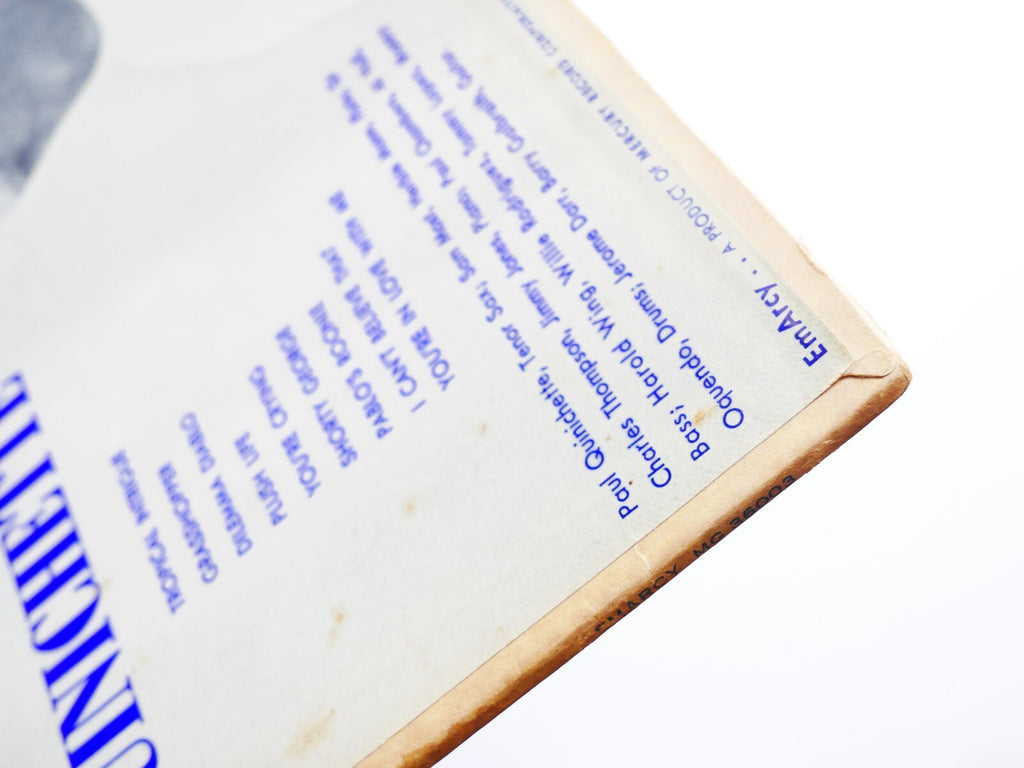 UINICHETTE
TROPICAL INTRIGUE
GRASSHOPPER
DILEMMA DIABLO
PLUSH LIFE
YOU'RE CRYING
SHORTY GEORGE
PABLO'S ROONIE
I CAN'T BELIEVE THAT
YOU'RE IN LOVE WITH ME
Paul Quinichette, Tenor Sax; Sam Most, Herbie Mann, Flute
Charles Thompson, Jimmy Jones, Piano; Paul Chambers, Al Hall,
Bass; Harold Wing, Willie Rodriguez, Tommy Lopez, Manny
Oquendo, Drums; Jerome Darr, Barry Galbraith, Guitar.
EmArcy . . . A PRODUCT OF MERCURY RECORD CORPORATION
EMARCY MG 36003